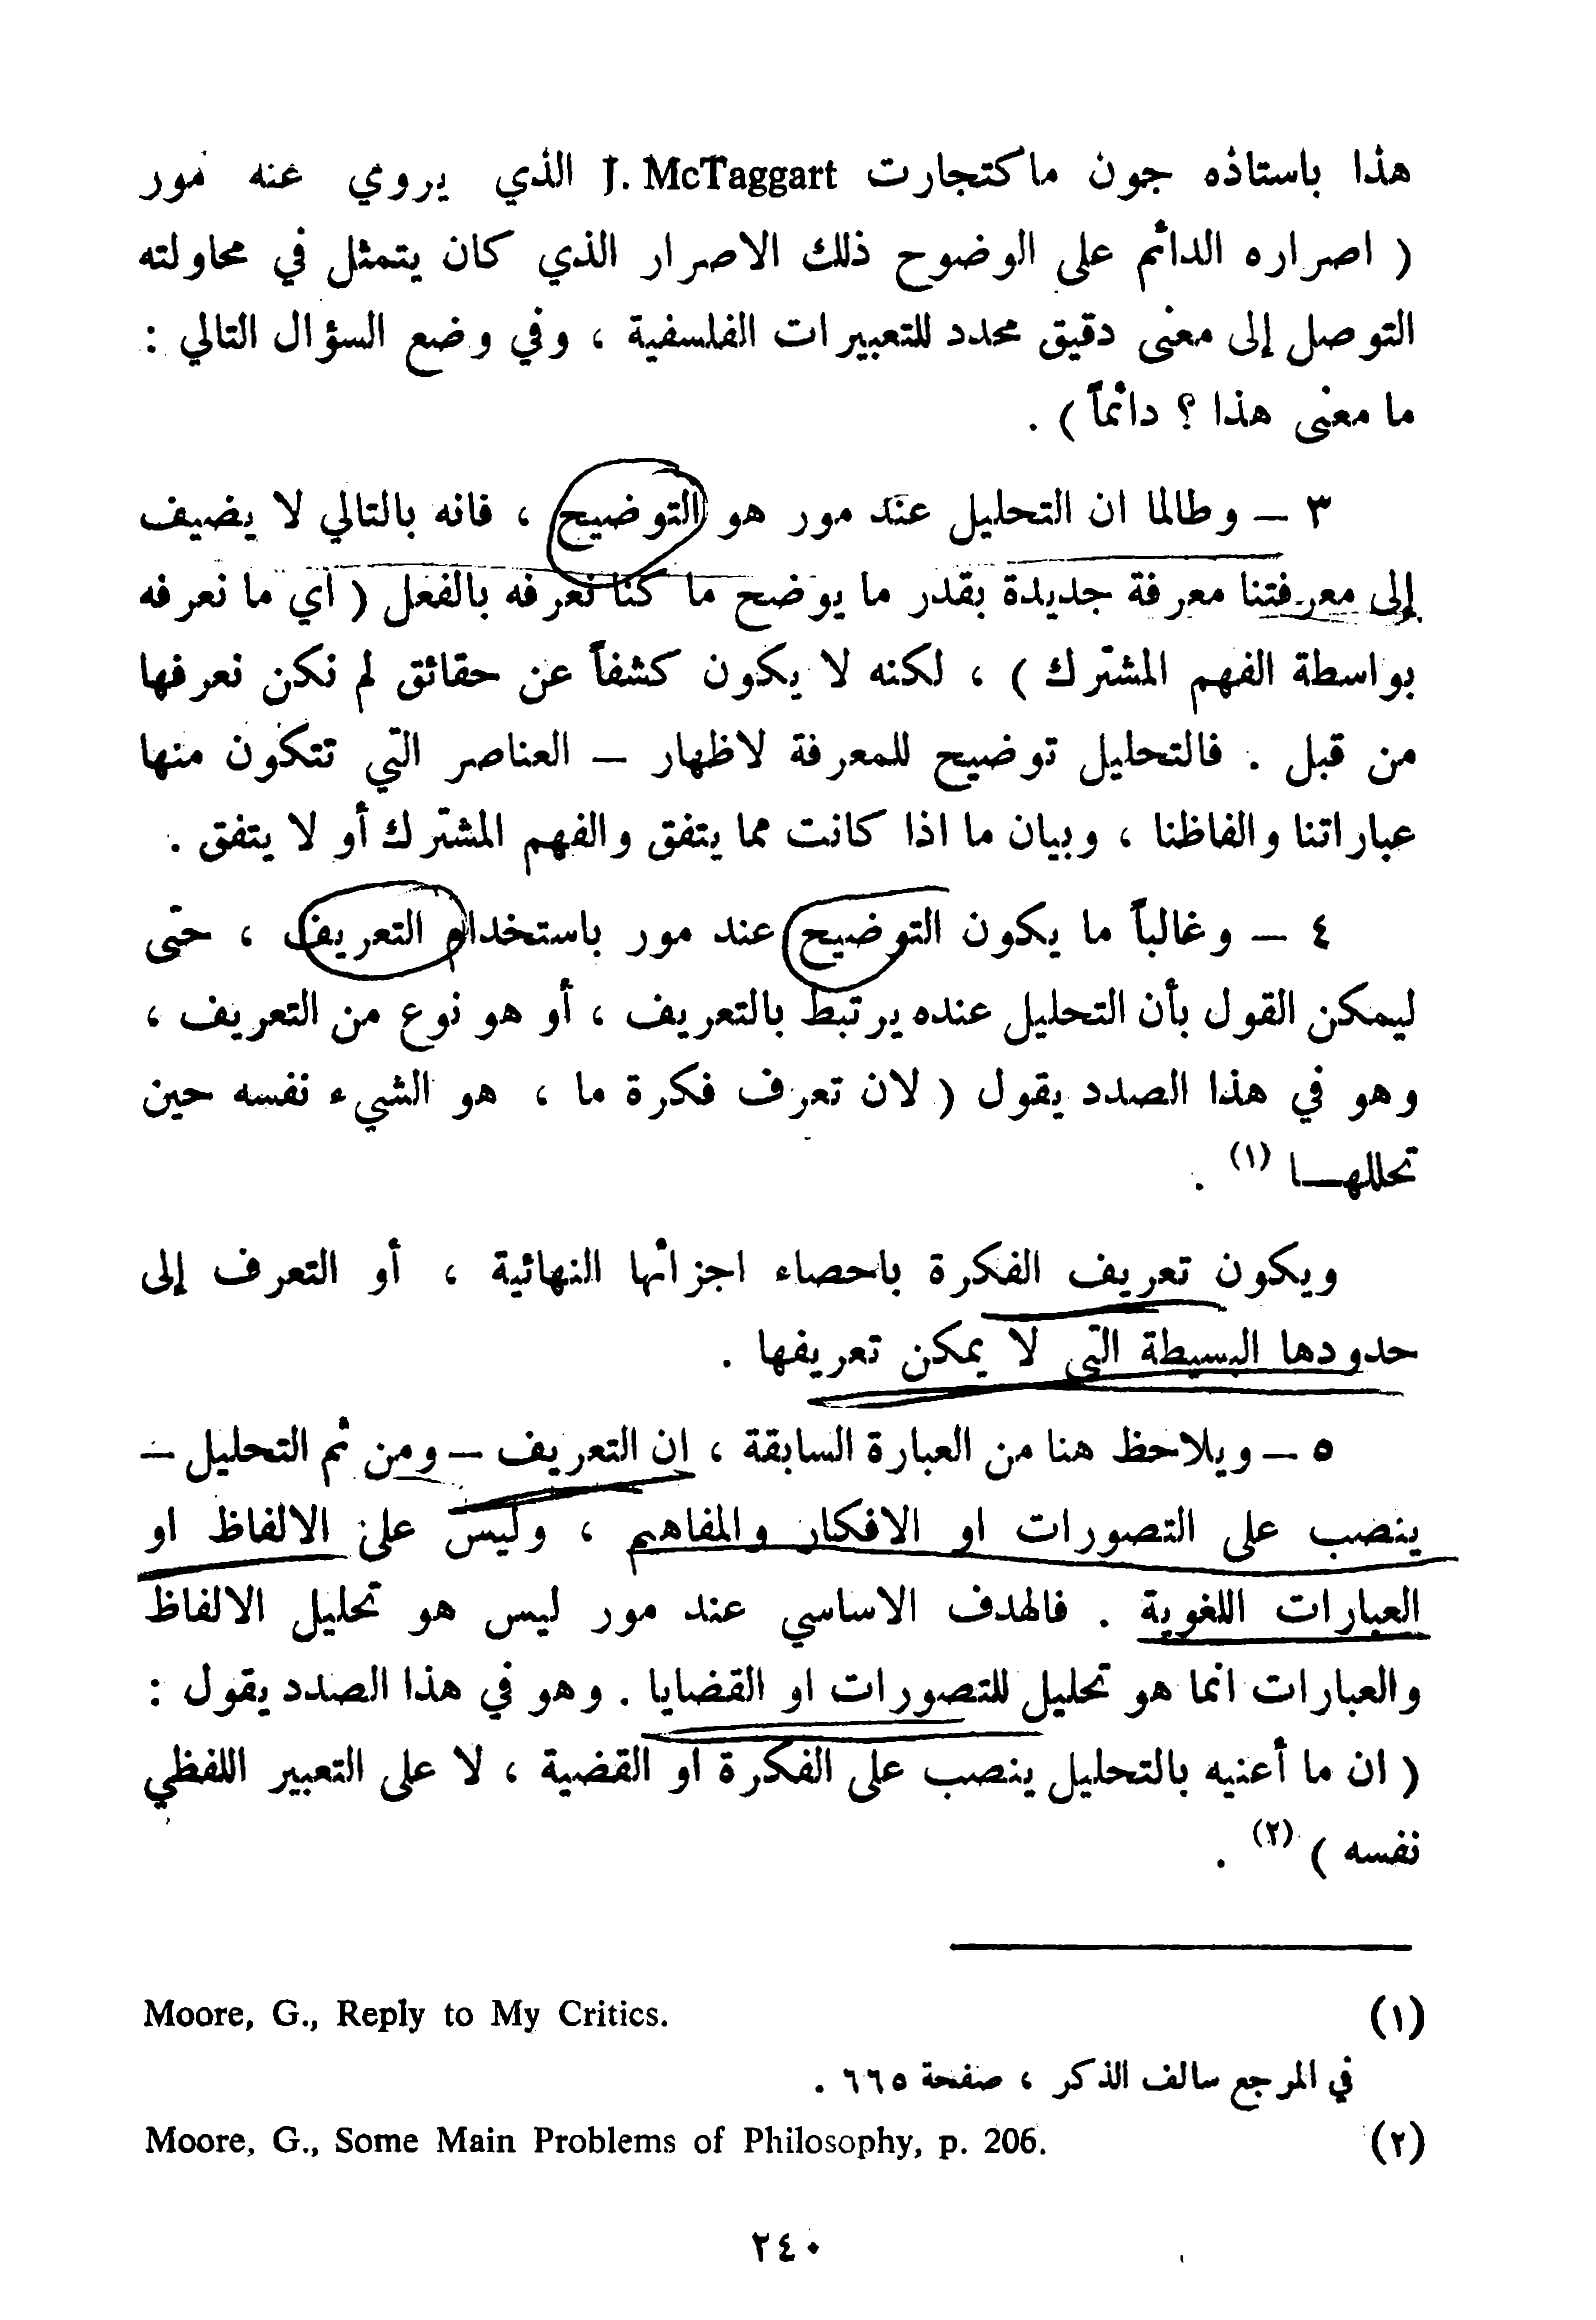 هذا باستاذه جون ماكتجارت J. McTaggart الذي يروي عنه مور
( اصراره الدائم على الوضوح ذلك الاصرار الذي كان يتمثل في محاولته
التوصل إلى معنى دقيق محدد للتعبيرات الفلسفية ، وفي وضع السؤال التالي :
ما معنى هذا ؟ دائماً ) .
٣ – وطالما ان التحليل عند مور هو التوضيح ، فانه بالتالي لا يضيف
إلى معرفتنا معرفة جديدة بقدر ما يوضح ما كنا نعرفه بالفعل ( اي ما نعرفه
بواسطة الفهم المشترك ) ، لكنه لا يكون كشفاً عن حقائق لم نكن نعرفها
من قبل . فالتحليل توضيح للمعرفة لاظهار – العناصر التي تتكون منها
عباراتنا والفاظنا ، وبيان ما اذا كانت مما يتفق والفهم المشترك أو لا يتفق .
٤ – وغالباً ما يكون التوضيح عند مور باستخدام التعريف ، حتى
ليمكن القول بأن التحليل عنده يرتبط بالتعريف ، أو هو نوع من التعريف ،
وهو في هذا الصدد يقول ( لان تعرف فكرة ما ، هو الشيء نفسه حين
تحللهـــا (١) .
ويكون تعريف الفكرة باحصاء اجزائها النهائية ، أو التعرف إلى
حدودها البسيطة التي لا يمكن تعريفها .
٥ – ويلاحظ هنا من العبارة السابقة ، ان التعريف – ومن ثم التحليل –
ينصب على التصورات او الافكار والمفاهيم ، وليس على الالفاظ او
العبارات اللغوية . فالهدف الاساسي عند مور ليس هو تحليل الالفاظ
والعبارات انما هو تحليل للتصورات او القضايا . وهو في هذا الصدد يقول :
( ان ما أعنيه بالتحليل ينصب على الفكرة او القضية ، لا على التعبير اللفظي
نفسه ) (٢) .
(١) Moore, G., Reply to My Critics.
في المرجع سالف الذكر ، صفحة ٦٦٥ .
(٢) Moore, G., Some Main Problems of Philosophy, p. 206.
٢٤٠